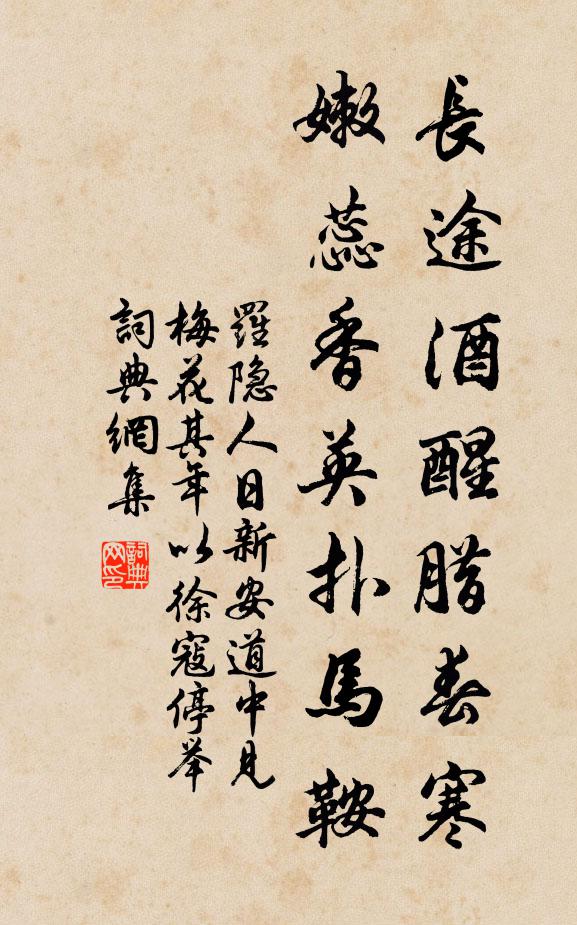 長途酒醒腊春寒
嫩蕊香英扑馬鞍
羅隐人日新安道中見
梅花其年以徐寇停举
詞典網集
詞典
网印